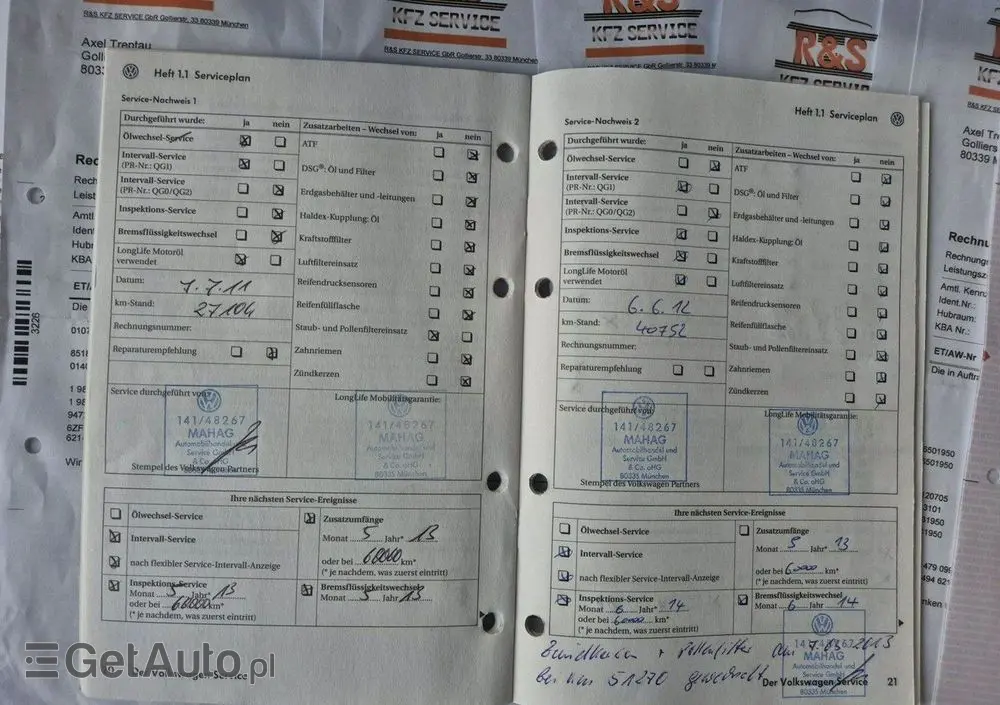 R&S KFZ SERVICE GbR Gollierstr. 33 80339 München
KFZ SERVICE
R&S KFZ SERVICE GbR Gollierstr. 33 80339 München
R&S
KFZ SERVICE
R&S KFZ SERVICE GbR Gollierstr. 33 80339
R&S
KFZ SERVICE
Axel Trentau
Golli
803
Axel Tr
Golliers
80339 M
3226
Heft 1.1 Serviceplan
Service-Nachweis 1
Durchgeführt wurde: ja nein
Ölwechsel-Service
Intervall-Service
(PR-Nr.: QG1)
Intervall-Service
(PR-Nr.: QG0/QG2)
Inspektions-Service
Bremsflüssigkeitswechsel
LongLife Motoröl
verwendet
Datum: 7.7.11
km-Stand: 27104
Rechnungsnummer:
Reparaturempfehlung
Zusatzarbeiten – Wechsel von: ja nein
ATF
DSG®: Öl und Filter
Erdgasbehälter und -leitungen
Haldex-Kupplung: Öl
Kraftstofffilter
Luftfiltereinsatz
Reifendrucksensoren
Reifenfüllflasche
Staub- und Pollenfiltereinsatz
Zahnriemen
Zündkerzen
Service durchgeführt von:
141/48267
MAHAG
Automobilhandel und
Service GmbH
& Co. oHG
Stempel des Volkswagen Partners
LongLife Mobilitätsgarantie:
141/48267
MAHAG
Automobilhandel und
Service GmbH
& Co. oHG
80335 München
Ihre nächsten Service-Ereignisse
Ölwechsel-Service
Intervall-Service
nach flexibler Service-Intervall-Anzeige
Inspektions-Service
Monat 5 Jahr* 13
oder bei 60000 km*
(* je nachdem, was zuerst eintritt)
Zusatzumfänge
Monat 5 Jahr* 13
oder bei 60000 km*
(* je nachdem, was zuerst eintritt)
Bremsflüssigkeitswechsel
Monat 5 Jahr 13
Der Volkswagen Service
Heft 1.1 Serviceplan
Service-Nachweis 2
Durchgeführt wurde: ja nein
Ölwechsel-Service
Intervall-Service
(PR-Nr.: QG1)
Intervall-Service
(PR-Nr.: QG0/QG2)
Inspektions-Service
Bremsflüssigkeitswechsel
LongLife Motoröl
verwendet
Datum: 6.6.12
km-Stand: 40752
Rechnungsnummer:
Reparaturempfehlung
Zusatzarbeiten – Wechsel von: ja nein
ATF
DSG®: Öl und Filter
Erdgasbehälter und -leitungen
Haldex-Kupplung: Öl
Kraftstofffilter
Luftfiltereinsatz
Reifendrucksensoren
Reifenfüllflasche
Staub- und Pollenfiltereinsatz
Zahnriemen
Zündkerzen
Service durchgeführt von:
141/48267
MAHAG
Automobilhandel und
Service GmbH
& Co. oHG
80335 München
Stempel des Volkswagen Partners
LongLife Mobilitätsgarantie:
141/48267
MAHAG
Automobilhandel und
Service GmbH
& Co. oHG
80335 München
Ihre nächsten Service-Ereignisse
Ölwechsel-Service
Intervall-Service
nach flexibler Service-Intervall-Anzeige
Inspektions-Service
Monat 6 Jahr* 14
oder bei 60000 km*
(* je nachdem, was zuerst eintritt)
Zusatzumfänge
Monat 5 Jahr* 13
oder bei 60000 km*
(* je nachdem, was zuerst eintritt)
Bremsflüssigkeitswechsel
Monat 6 Jahr 14
2013
bei km 51270
141/48267
MAHAG
Automobilhandel und
Service GmbH
& Co. oHG
80335 München
Der Volkswagen Service 21
Rechnu
Rechnung
Leistungsz
Amtl. Kenn
Ident.Nr.:
Hubraum:
KBA Nr.:
ET/AW-Nr
Die in Auftr
GetAuto.pl